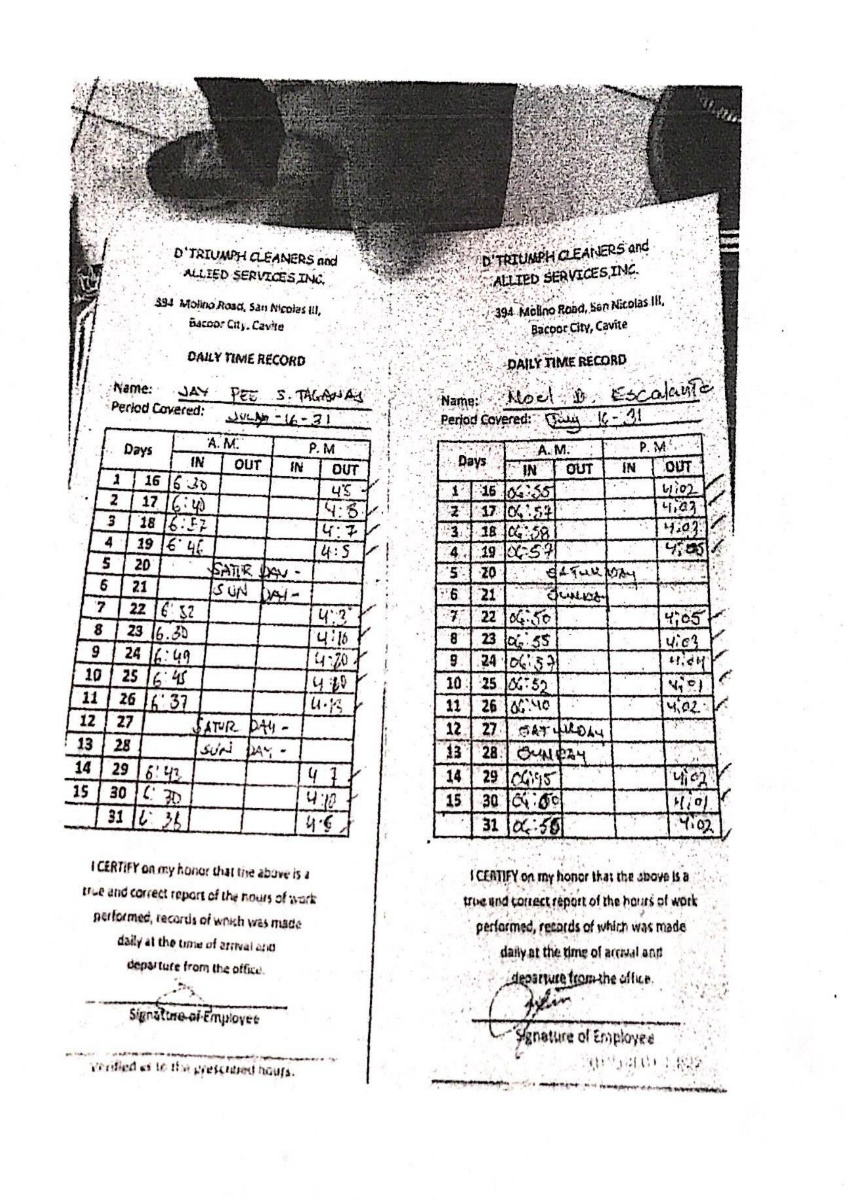 D'TRIUMPH CLEANERS and
ALLIED SERVICES,INC.
394 Molino Road, San Nicolas III,
Bacoor City, Cavite
DAILY TIME RECORD
Name: JAY PEE S. TAGANAS
Period Covered: -16-31
Days A.M. P.M
IN OUT IN OUT
1 16 6:30 4:5
2 17 6:40 4:8
3 18 6:57 4:7
4 19 6:46 4:5
5 20 SATUR DAY -
6 21 SUN DAY -
7 22 6:52 4:3
8 23 6.30 4:10
9 24 6:49 4:20
10 25 6:45
11 26 6:37 4:13
12 27 SATUR DAY -
13 28 SUN DAY -
14 29 6:43 4 7
15 30 4:10
31 6:38
I CERTIFY on my honor that the above is a
true and correct report of the hours of work
performed, records of which was made
daily at the time of arrival and
departure from the office.
Signature of Employee
Verified as to the prescribed hours.
D'TRIUMPH CLEANERS and
ALLIED SERVICES,INC.
394 Molino Road, San Nicolas III,
Bacoor City, Cavite
DAILY TIME RECORD
Name: Noel D. Escalante
Period Covered: July 16-31
Days A.M. P.M
IN OUT IN OUT
1 16 06:55 4:02
2 17 06:57 4:03
3 18 06:58 4:03
4 19 06:57 4:05
5 20 SATURDAY
6 21 SUNDAY
7 22 06:50 4:05
8 23 06:55 4:03
9 24 06:57 4:04
10 25 06:52 4:01
11 26 06:40 4:02
12 27 SATURDAY
13 28 SUNDAY
14 29 06:45 4:02
15 30 4:01
31 06:58 4:02
I CERTIFY on my honor that the above is a
true and correct report of the hours of work
performed, records of which was made
daily at the time of arrival and
departure from the office.
Signature of Employee